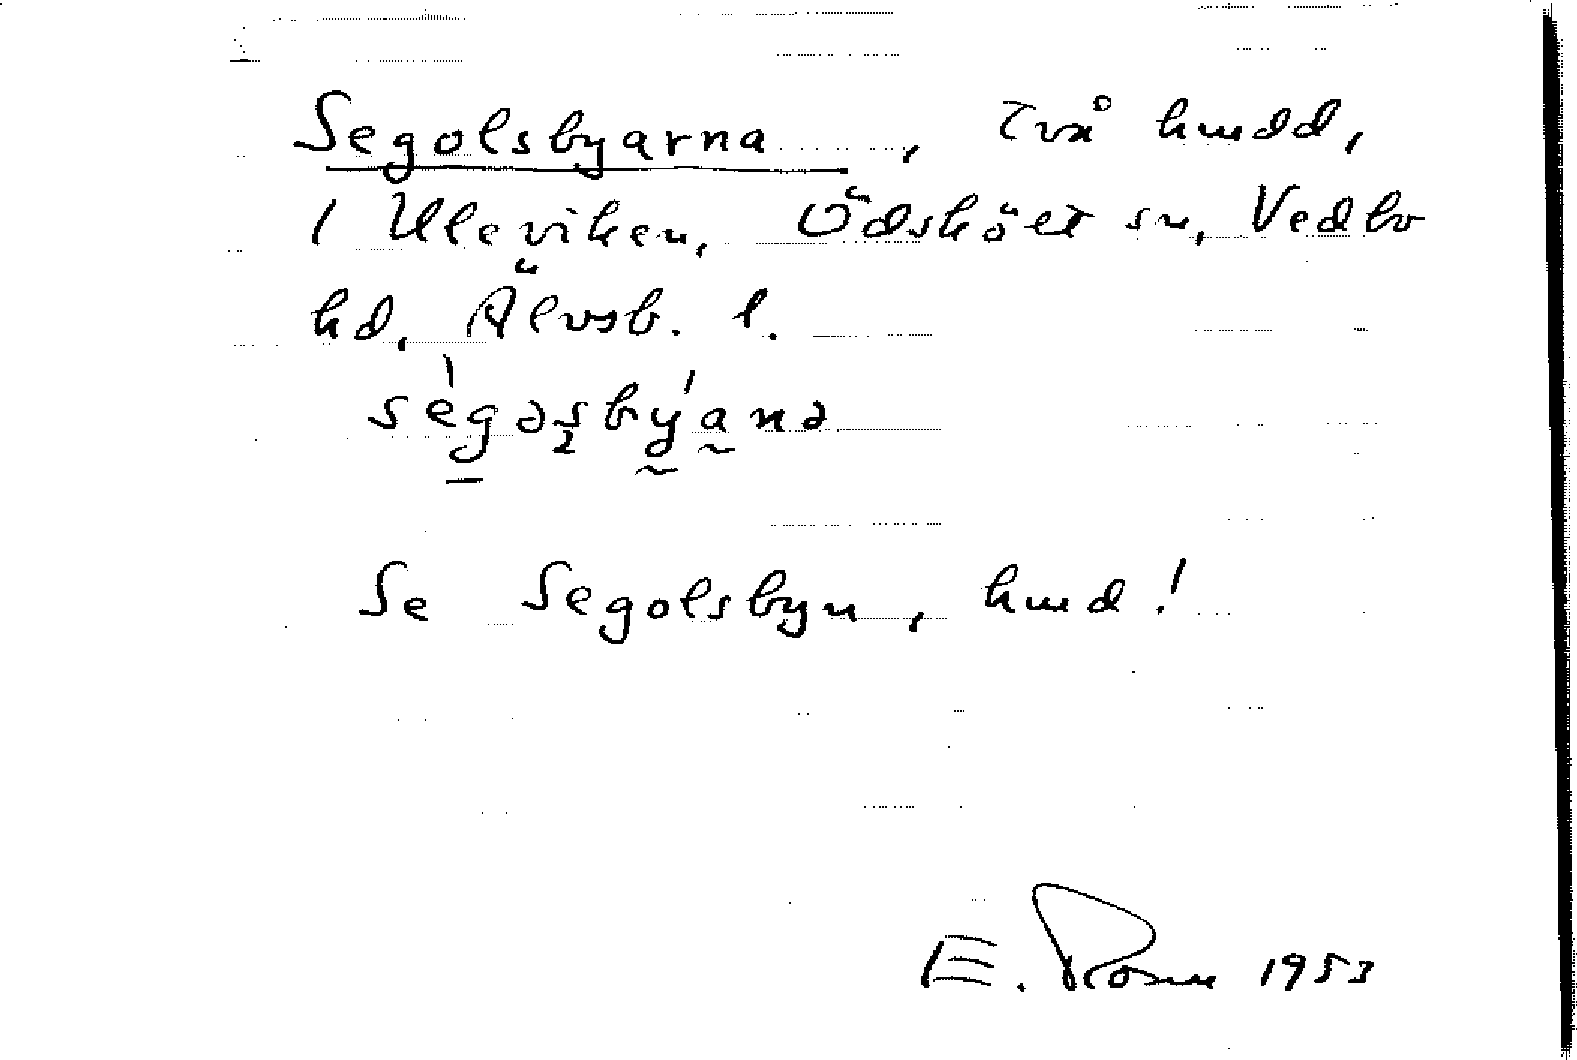 Segolsbyarna, två hmdd,
i Ulleviken, Ödskölt sn, Vedbo
hd, Älvsb. l.
Se Segolsbyn, hmd!
E. 1953